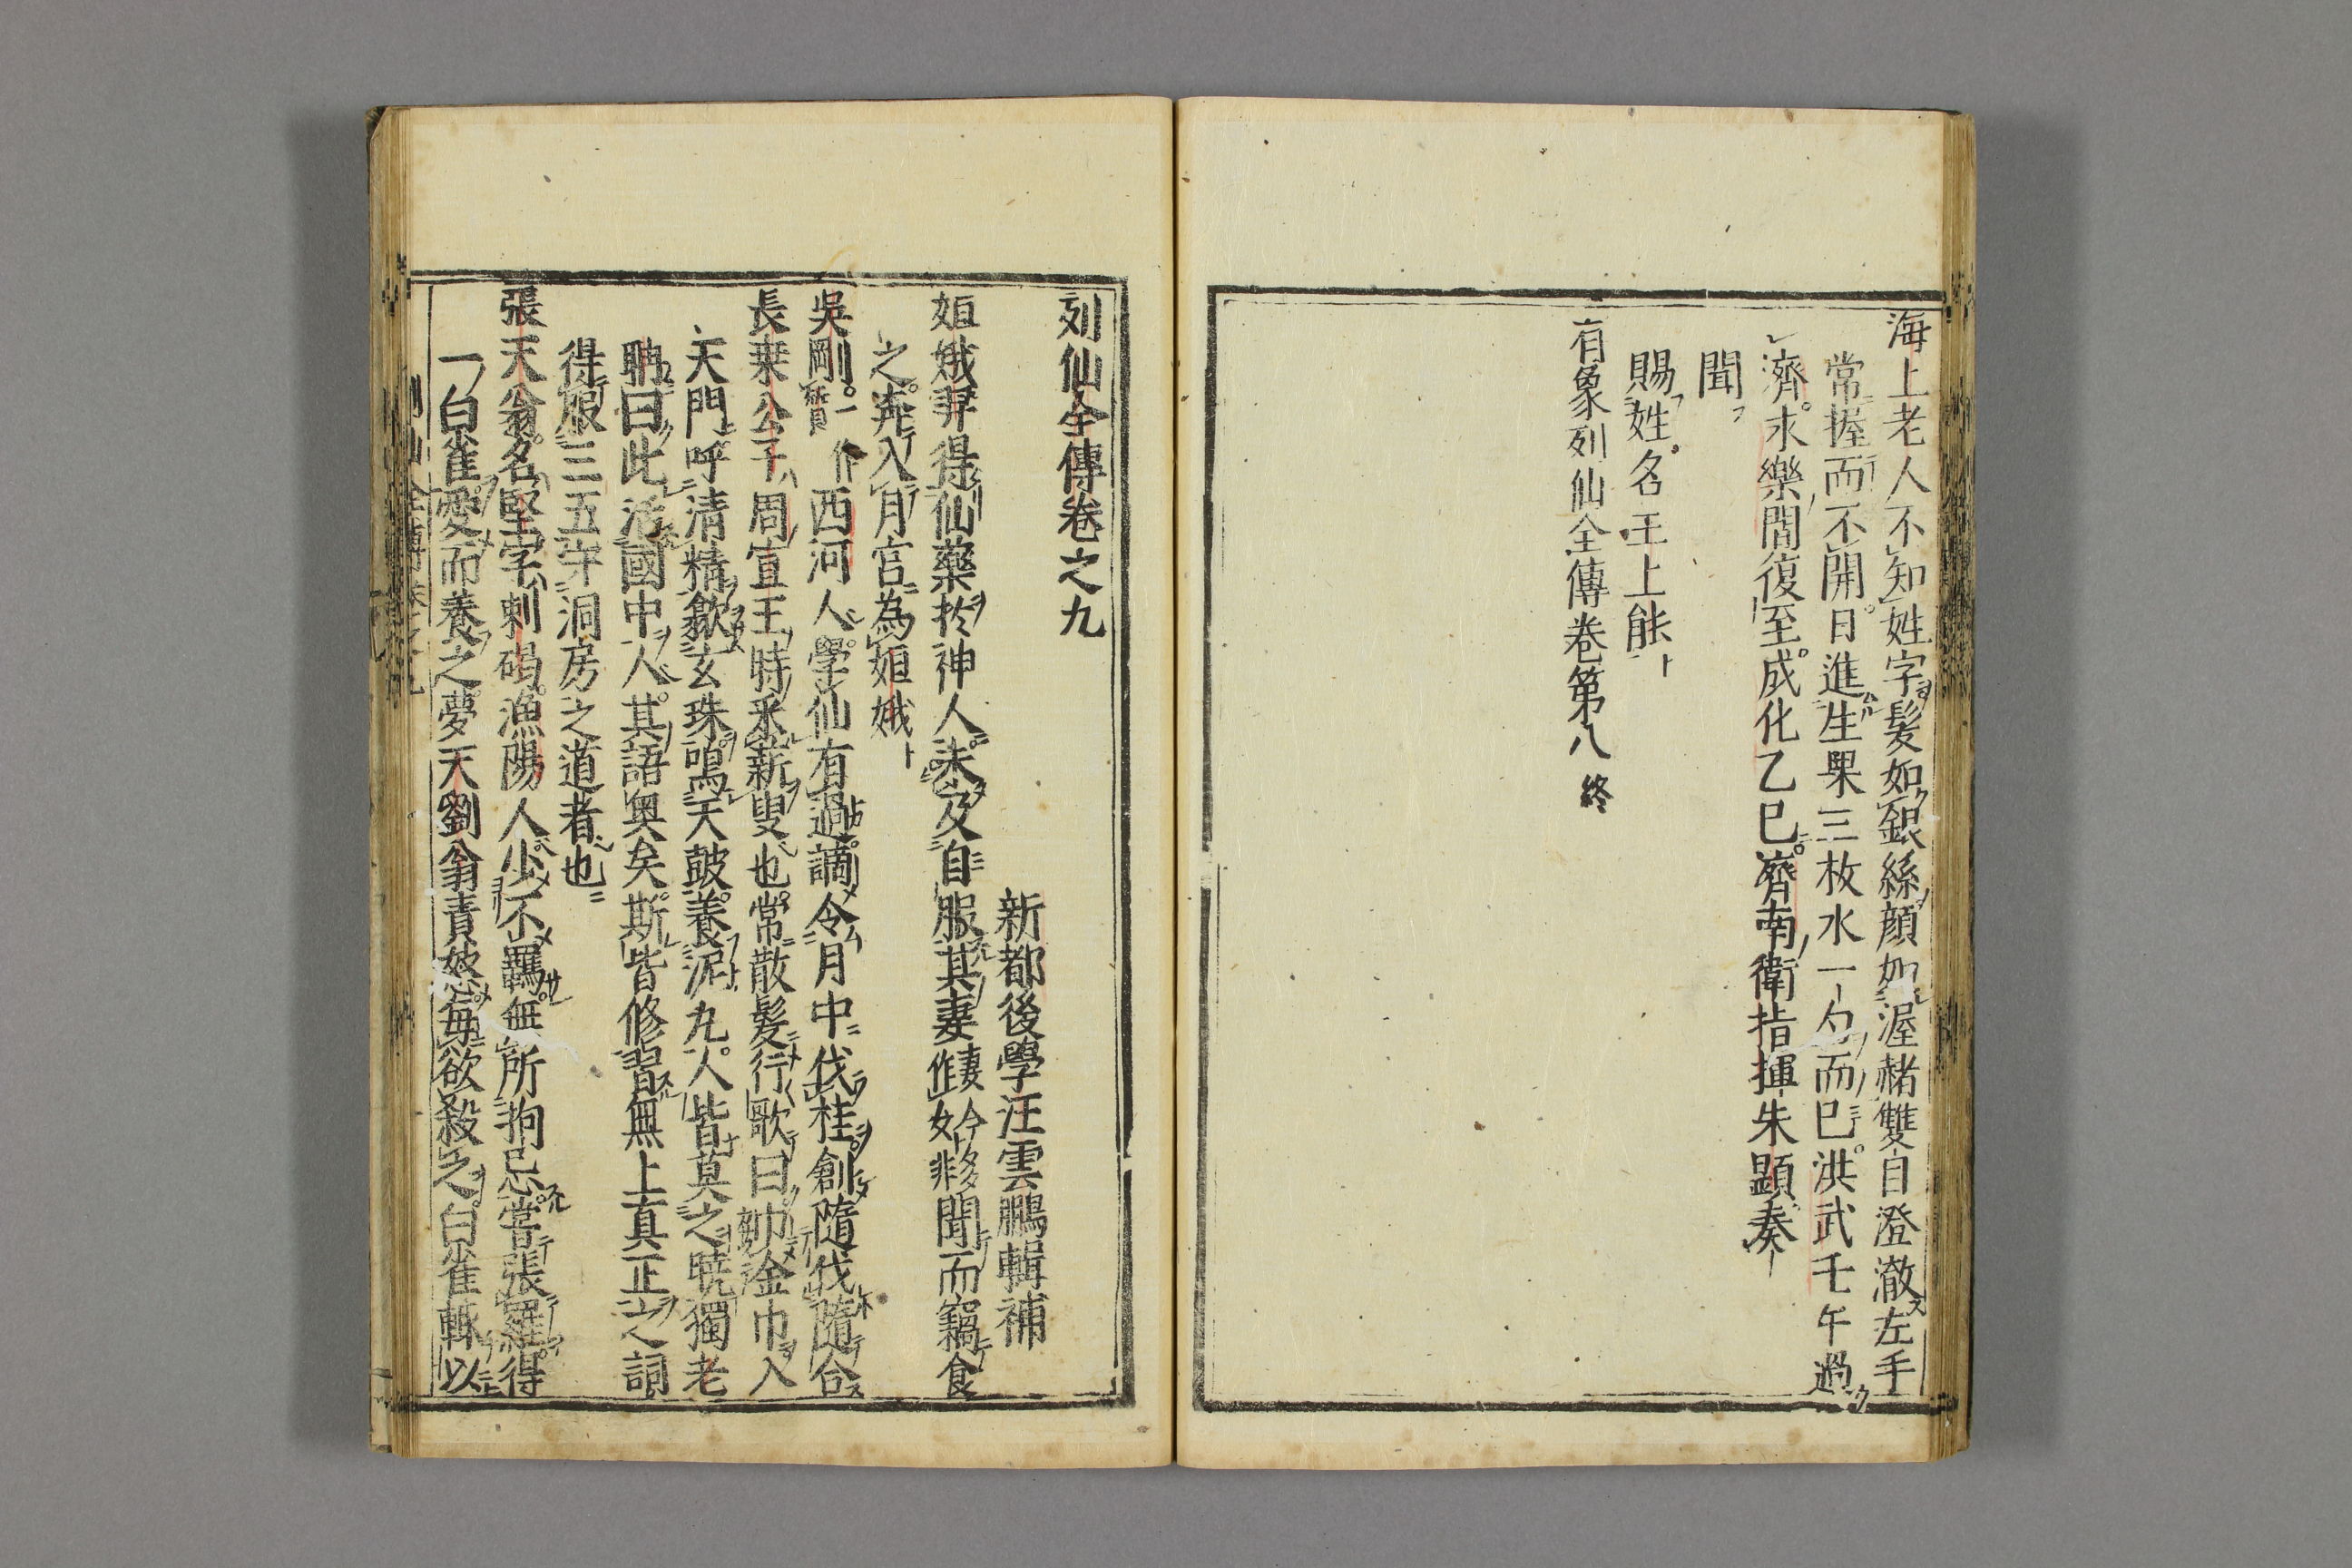 海上老人不知姓字髮如銀絲顔如渥赭雙目澄澈左手
常握而不開日進生果三枚水一勺而巳洪武壬午過
濟求樂間復至成化乙巳濟南衛指揮朱顕奏
聞
賜姓名王上能
有象列仙全傳卷第八終
列仙全傳卷之九
新都後學汪雲鵬輯補
姮娥羿得仙藥於神人未及自服其妻妻今作女非多聞而竊食
之奔入月宮為姮娥
吳剛一作質西河人學仙有過謫令月中伐桂創隨伐隨合
長桒公子周宣王時采薪叟也常散髮行歌曰巾金巾入
天門呼清精歙玄珠鳴天皷養泥九人皆莫之暁獨老
聃曰此活國中人其語奥矣斯皆修習無上真正之詞
得服三五守洞房之道者也
張天翁名堅字刺碣漁陽人少不羈無所拘忌嘗張羅得
一白雀愛而養之夢天劉翁責怒每欲殺之白雀輙以